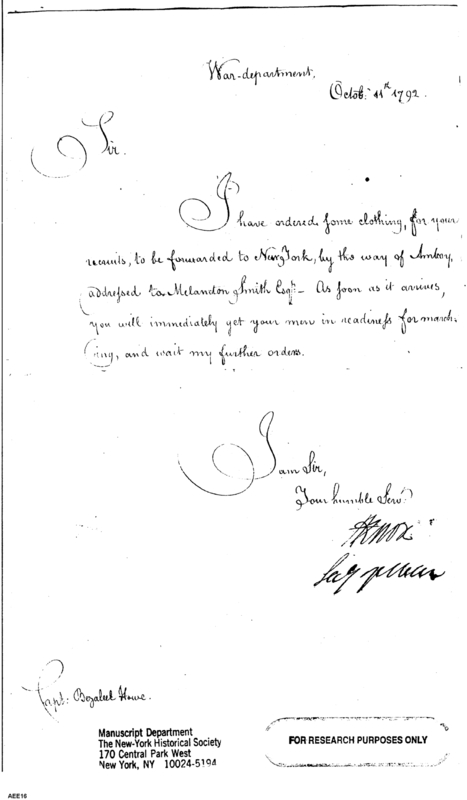 War-department,
Octob. 11st 1792.
Sir.
I have ordered some clothing, for your
recruits, to be forwarded to New York, by the way of Amboy,
addressed to Melandon Smith Esqr. As soon as it arrives,
you will immediately get your men in readiness for march-
ing, and wait my further orders.
I am Sir,
Your humble Servt.
HKnox
Secy of war
Capt: Bezaleel Howe.
Manuscript Department
The New-York Historical Society
170 Central Park West
New York, NY 10024-5194
FOR RESEARCH PURPOSES ONLY
AEE16